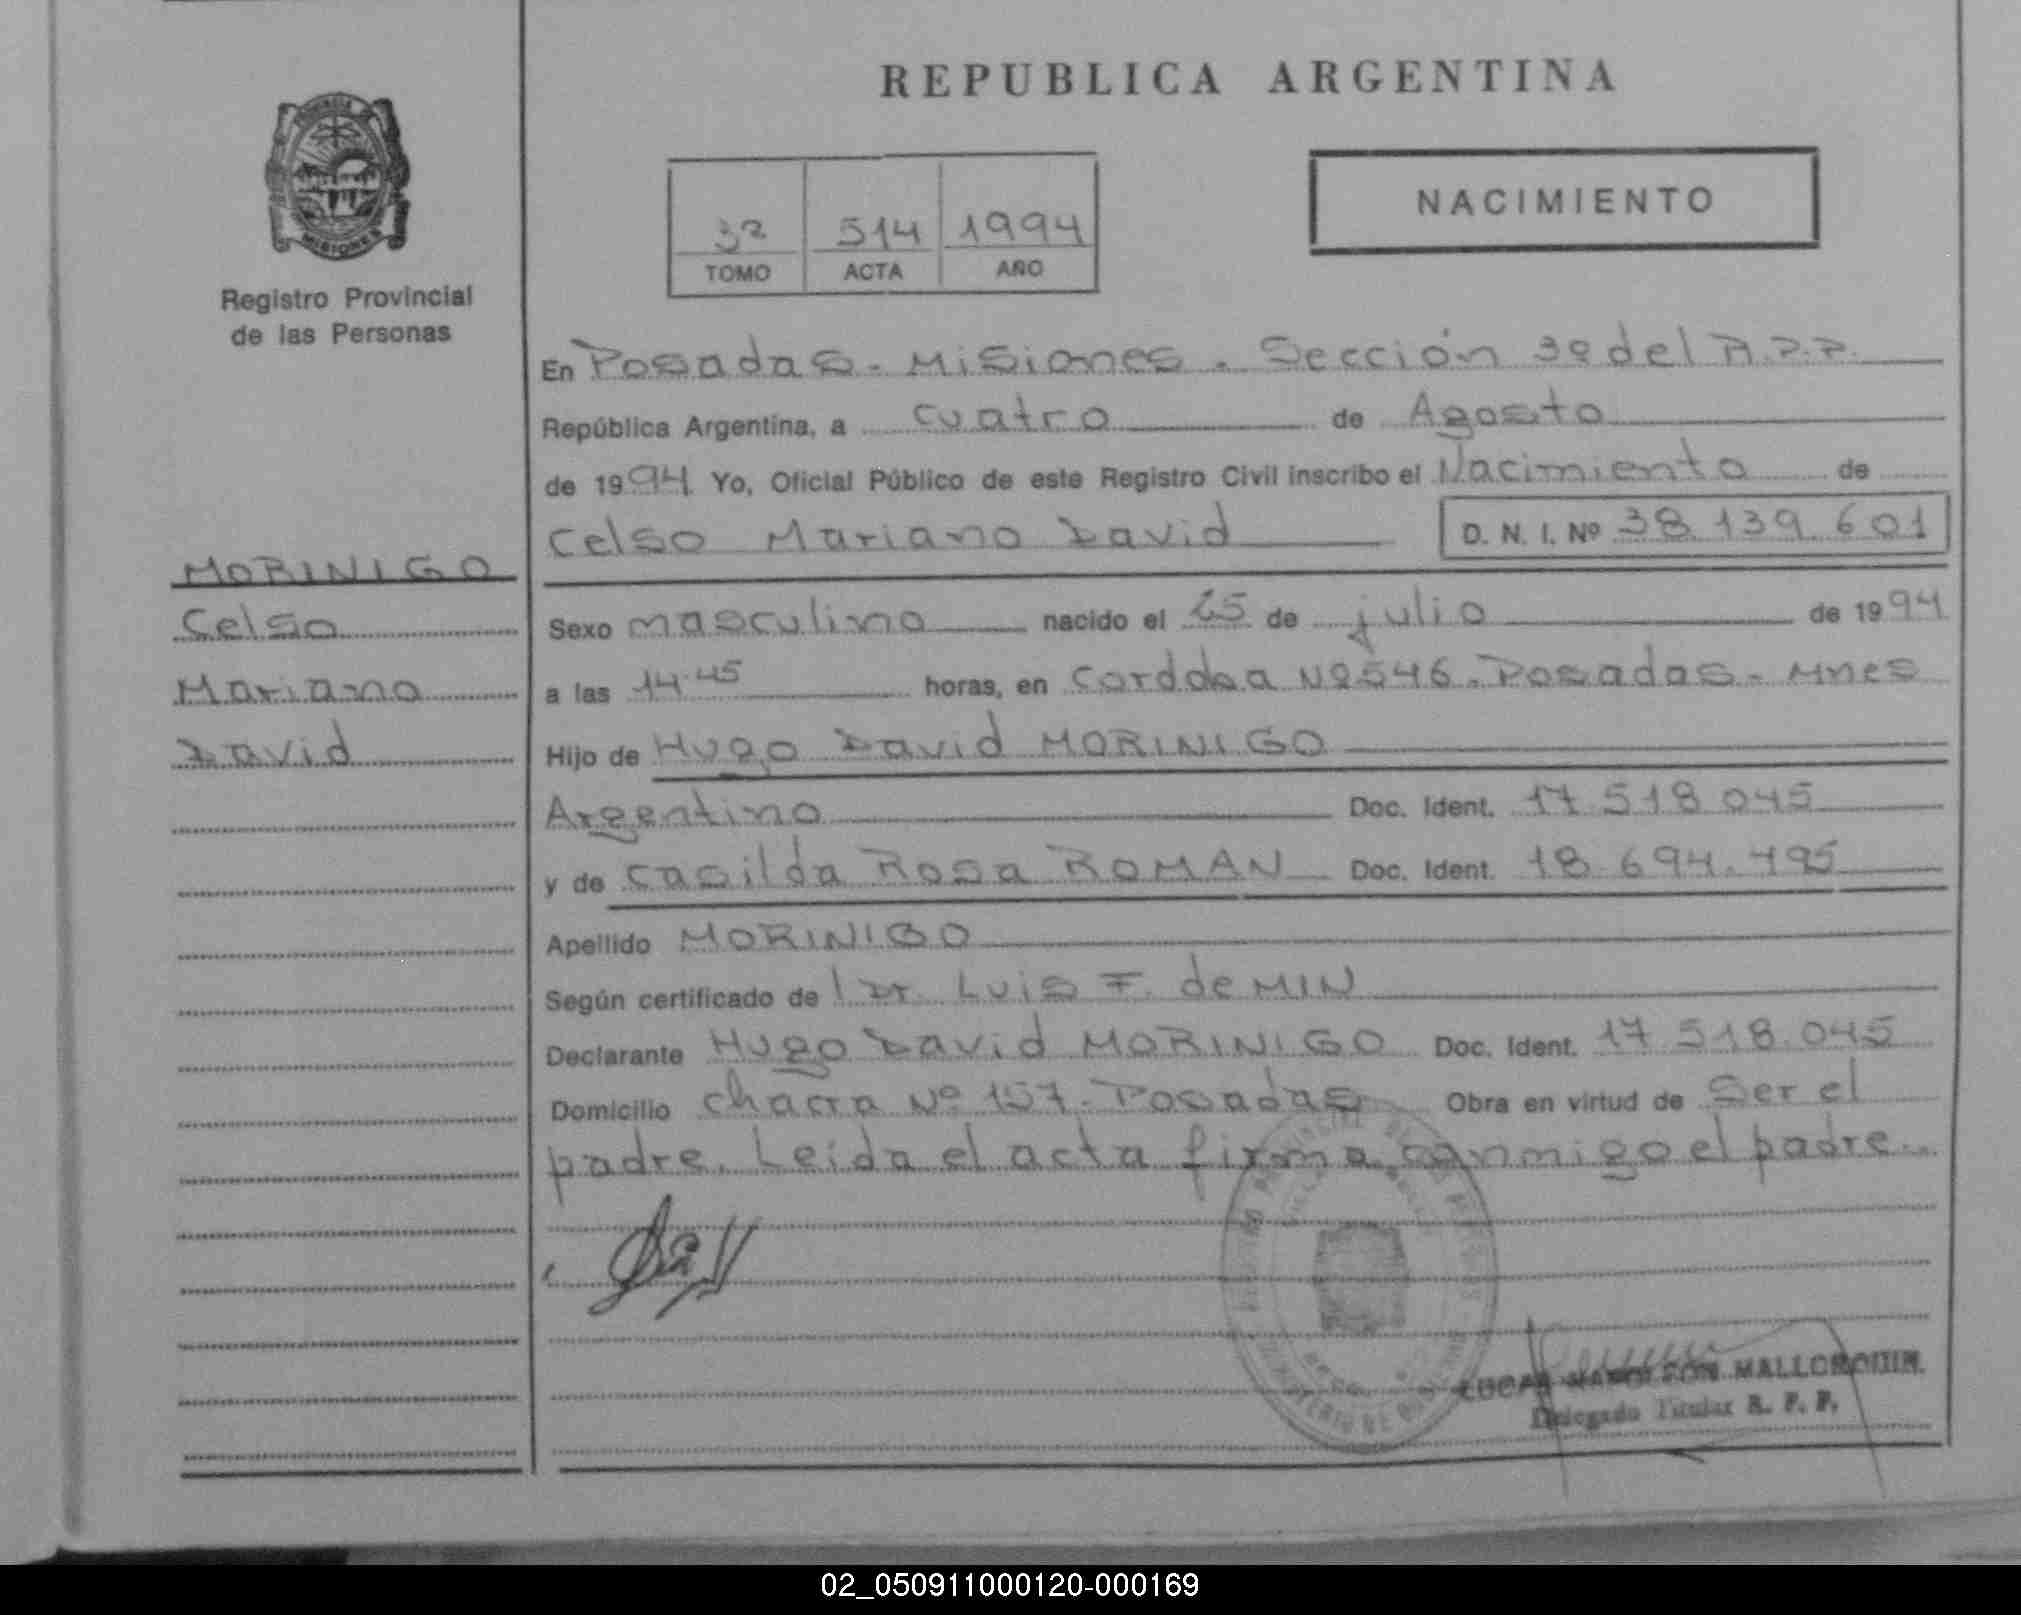 REPUBLICA ARGENTINA
NACIMIENTO
3º 514 1994
TOMO ACTA AÑO
MISIONES
Registro Provincial
de las Personas
En Posadas - Misiones. Sección 3º del R.P.P.
República Argentina, a cuatro de Agosto
de 1994 Yo, Oficial Público de este Registro Civil inscribo el Nacimiento de
Celso Mariano David D. N. I. Nº 38.139.601
MORINIGO
Celso
Mariano
David
Sexo masculino nacido el 25 de julio de 1994
a las 14.45 horas, en Cordoba Nº 546. Posadas - Mnes
Hijo de Hugo David MORINIGO
Argentino Doc. Ident. 17.518.045
y de Casilda Rosa ROMAN Doc. Ident. 18.694.495
Apellido MORINIGO
Según certificado de l Dr. Luis F. de MIN
Declarante Hugo David MORINIGO Doc. Ident. 17.518.045
Domicilio chacra Nº 157. Posadas Obra en virtud de Ser el
padre. Leida el acta firma conmigo el padre..
LUCAS NAPOLEON MALLORQUIN
Delegado Titular R. P. P.
02_050911000120-000169